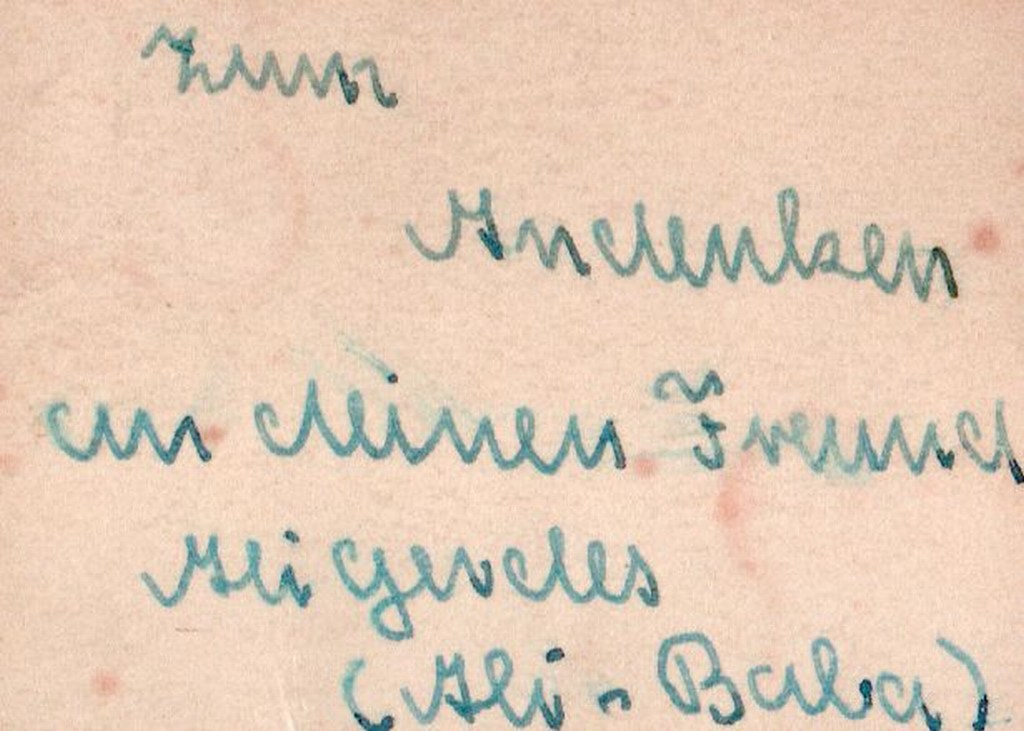 Zum
Andenken
an deinen Freund
Ali Gerdes
(Ali-Baba)